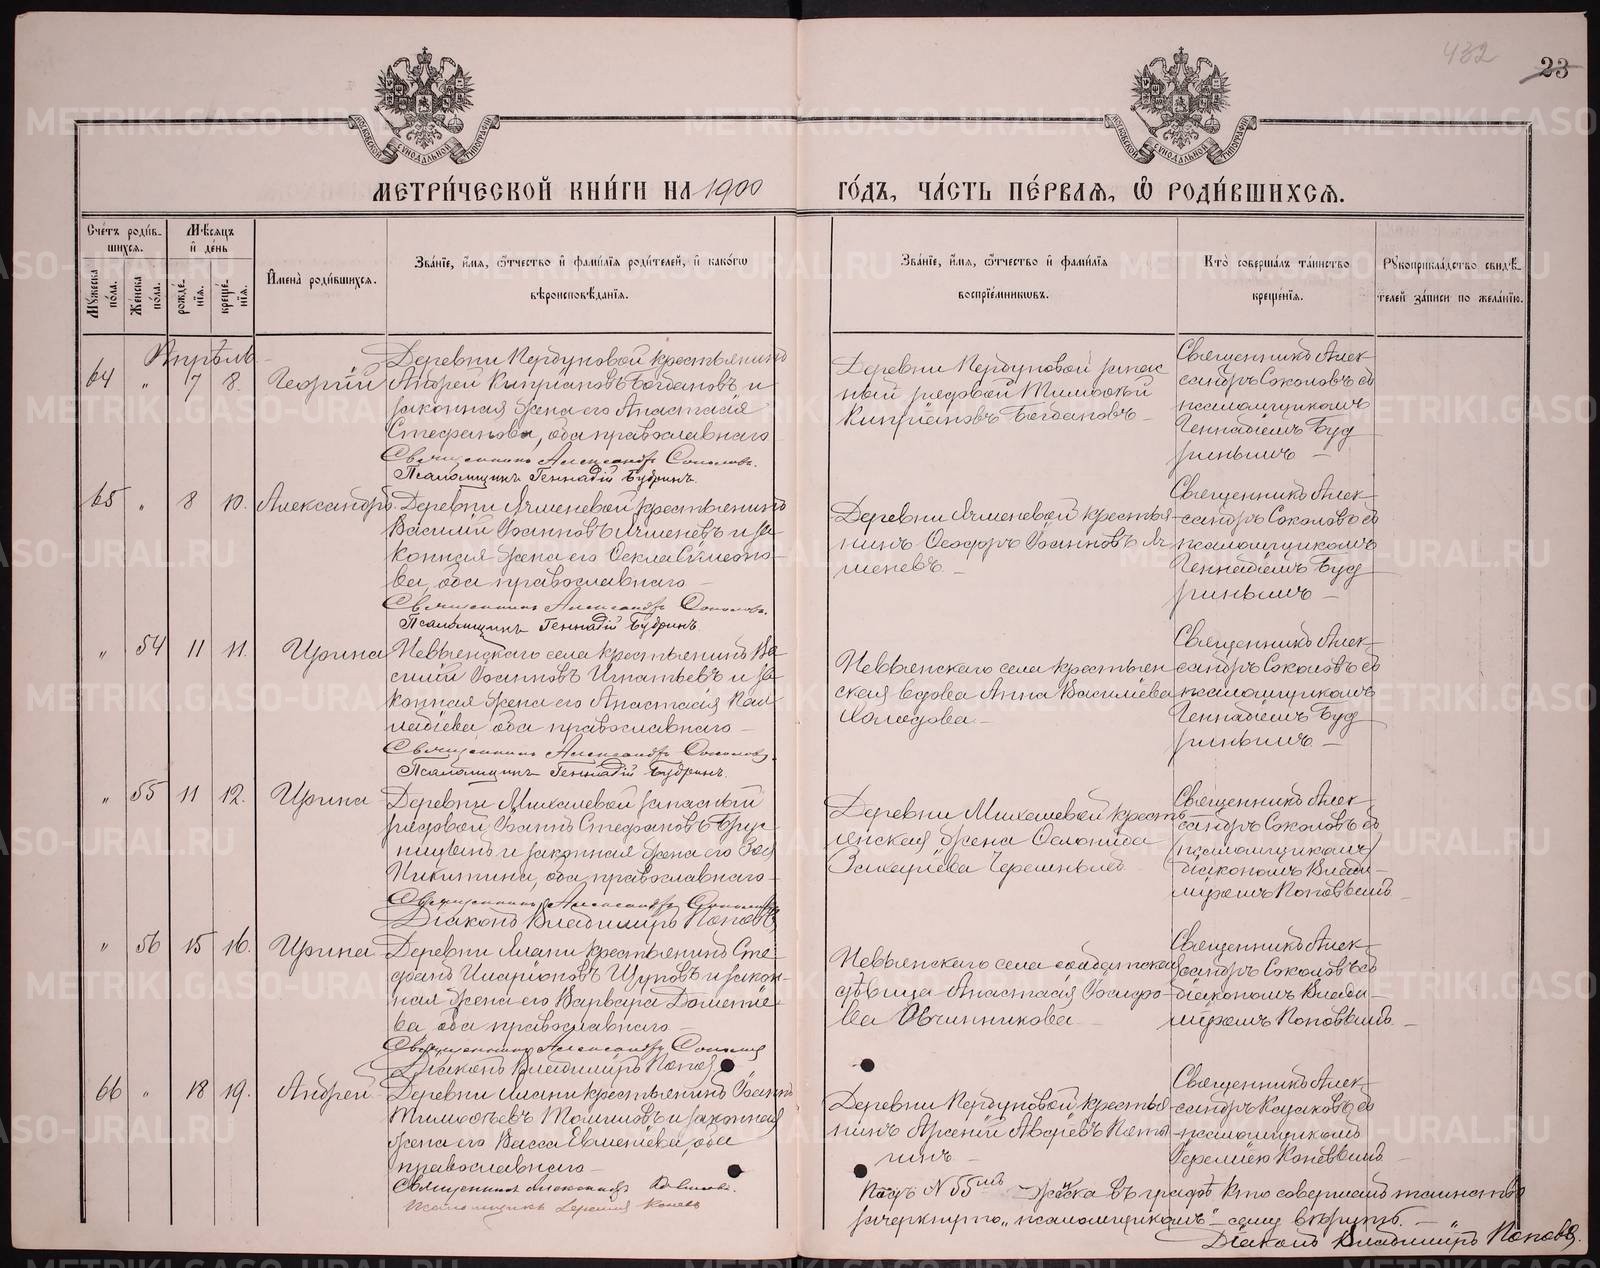 432
23
МЕТРИ́ЧЕСКОЙ КНИ́ГИ НА 1900 ГО́ДЪ, ЧА́СТЬ ПЕ́РВАѦ, Ѡ҆ РОДИ́ВШИХСѦ.
Сче́тъ роди́в-
шихся.
Мѣ́сяцъ
и҆ де́нь
Му́жеска
по́ла.
Же́нска
по́ла.
рожде-
нїя.
креще-
нїя.
И҆мена̀ роди́вшихся.
Зва́нїе, и҆́мя, ѻ҆́тчество и҆ фами́лїя роди́телей, и҆ како́гѡ
вѣроисповѣ́данїя.
Зва́нїе, и҆́мя, ѻ҆́тчество и҆ фами́лїя
воспрїе́мникѡвъ.
Кто̀ соверша́лъ та́инство
креще́нїя.
Рꙋкоприкла́дство свидѣ́-
телей за́писи по жела́нїю.
Апрѣль
64 " 7 8. Георгій
Деревни Пербуновой крестьянинъ
Андрей Кипріановъ Богдановъ и
законная жена его Анастасія
Стефанова, оба православнаго
Священникъ Александръ Соколовъ.
Псаломщикъ Геннадій Будринъ.
Деревни Пербуновой запас
ный рядовой Тимоѳей
Кипріановъ Богдановъ
Священникъ Алек
сандръ Соколовъ съ
псаломщикомъ
Геннадіемъ Буд
ринымъ
65 " 8 10. Александръ
Деревни Ячменевой крестьянинъ
Василій Іоанновъ Ячменевъ и за
конная жена его Ѳекла Симеоно-
ва, оба православнаго
Священникъ Александръ Соколовъ.
Псаломщикъ Геннадій Будринъ
Деревни Ячменевой крестья
нинъ Ѳеодоръ Іоанновъ Яч
меневъ
Священникъ Алек-
сандръ Соколовъ съ
псаломщикомъ
Геннадіемъ Буд
ринымъ
" 54 11 11. Ирина
Невьянскаго села крестьянинъ Ва-
силій Іоанновъ Игнатьевъ и за
конная жена его Анастасія Пал
ладіева, оба православнаго
Священникъ Александръ Соколовъ
Псаломщикъ Геннадій Будринъ.
Невьянскаго села крестьян
ская вдова Анна Василіева
Священникъ Алек-
сандръ Соколовъ съ
псаломщикомъ
Геннадіемъ Буд
ринымъ
" 55 11 12. Ирина
Деревни Михалевой запасный
рядовой Іоаннъ Стефановъ Брус
ницынъ и законная жена его Зоя
Никитина, оба православнаго
Священникъ Александръ Соколовъ
Діаконъ Владиміръ Поповъ
Деревни Михалевой кресть
янская жена
Захаріева
Священникъ Алек
сандръ Соколовъ съ
(псаломщикомъ)
діакономъ Влади-
міромъ Поповымъ
" 56 15 16. Ирина
Деревни Ялани крестьянинъ Сте-
фанъ Иларіоновъ Щуповъ и закон-
ная жена его Варвара Дометіе
ва, оба православнаго
Священникъ Александръ Соколовъ
Діаконъ Владиміръ Поповъ
Невьянскаго села солдатская
дѣвица Анастасія Іосифо-
ва Овчинникова
Священникъ Алек-
сандръ Соколовъ съ
діакономъ Влади-
міромъ Поповымъ
66 " 18 19. Андрей
Деревни Ялани крестьянинъ Іоаннъ
Тимоѳеевъ Томиловъ и законная
жена его Васса Евменіева, оба
православнаго
Священникъ Александръ
Псаломщикъ Іеремія Коневъ
Деревни Пербуновой крестья
нинъ Арсеній
Священникъ Алек-
сандръ съ
псаломщикомъ
Іереміею Коневымъ
Подъ № 55мъ въ графѣ Кто совершалъ таинство
зачеркнуто „псаломщикомъ“ – сему вѣрить.
Діаконъ Владиміръ Поповъ.
METRIKI.GASO-URAL.RU